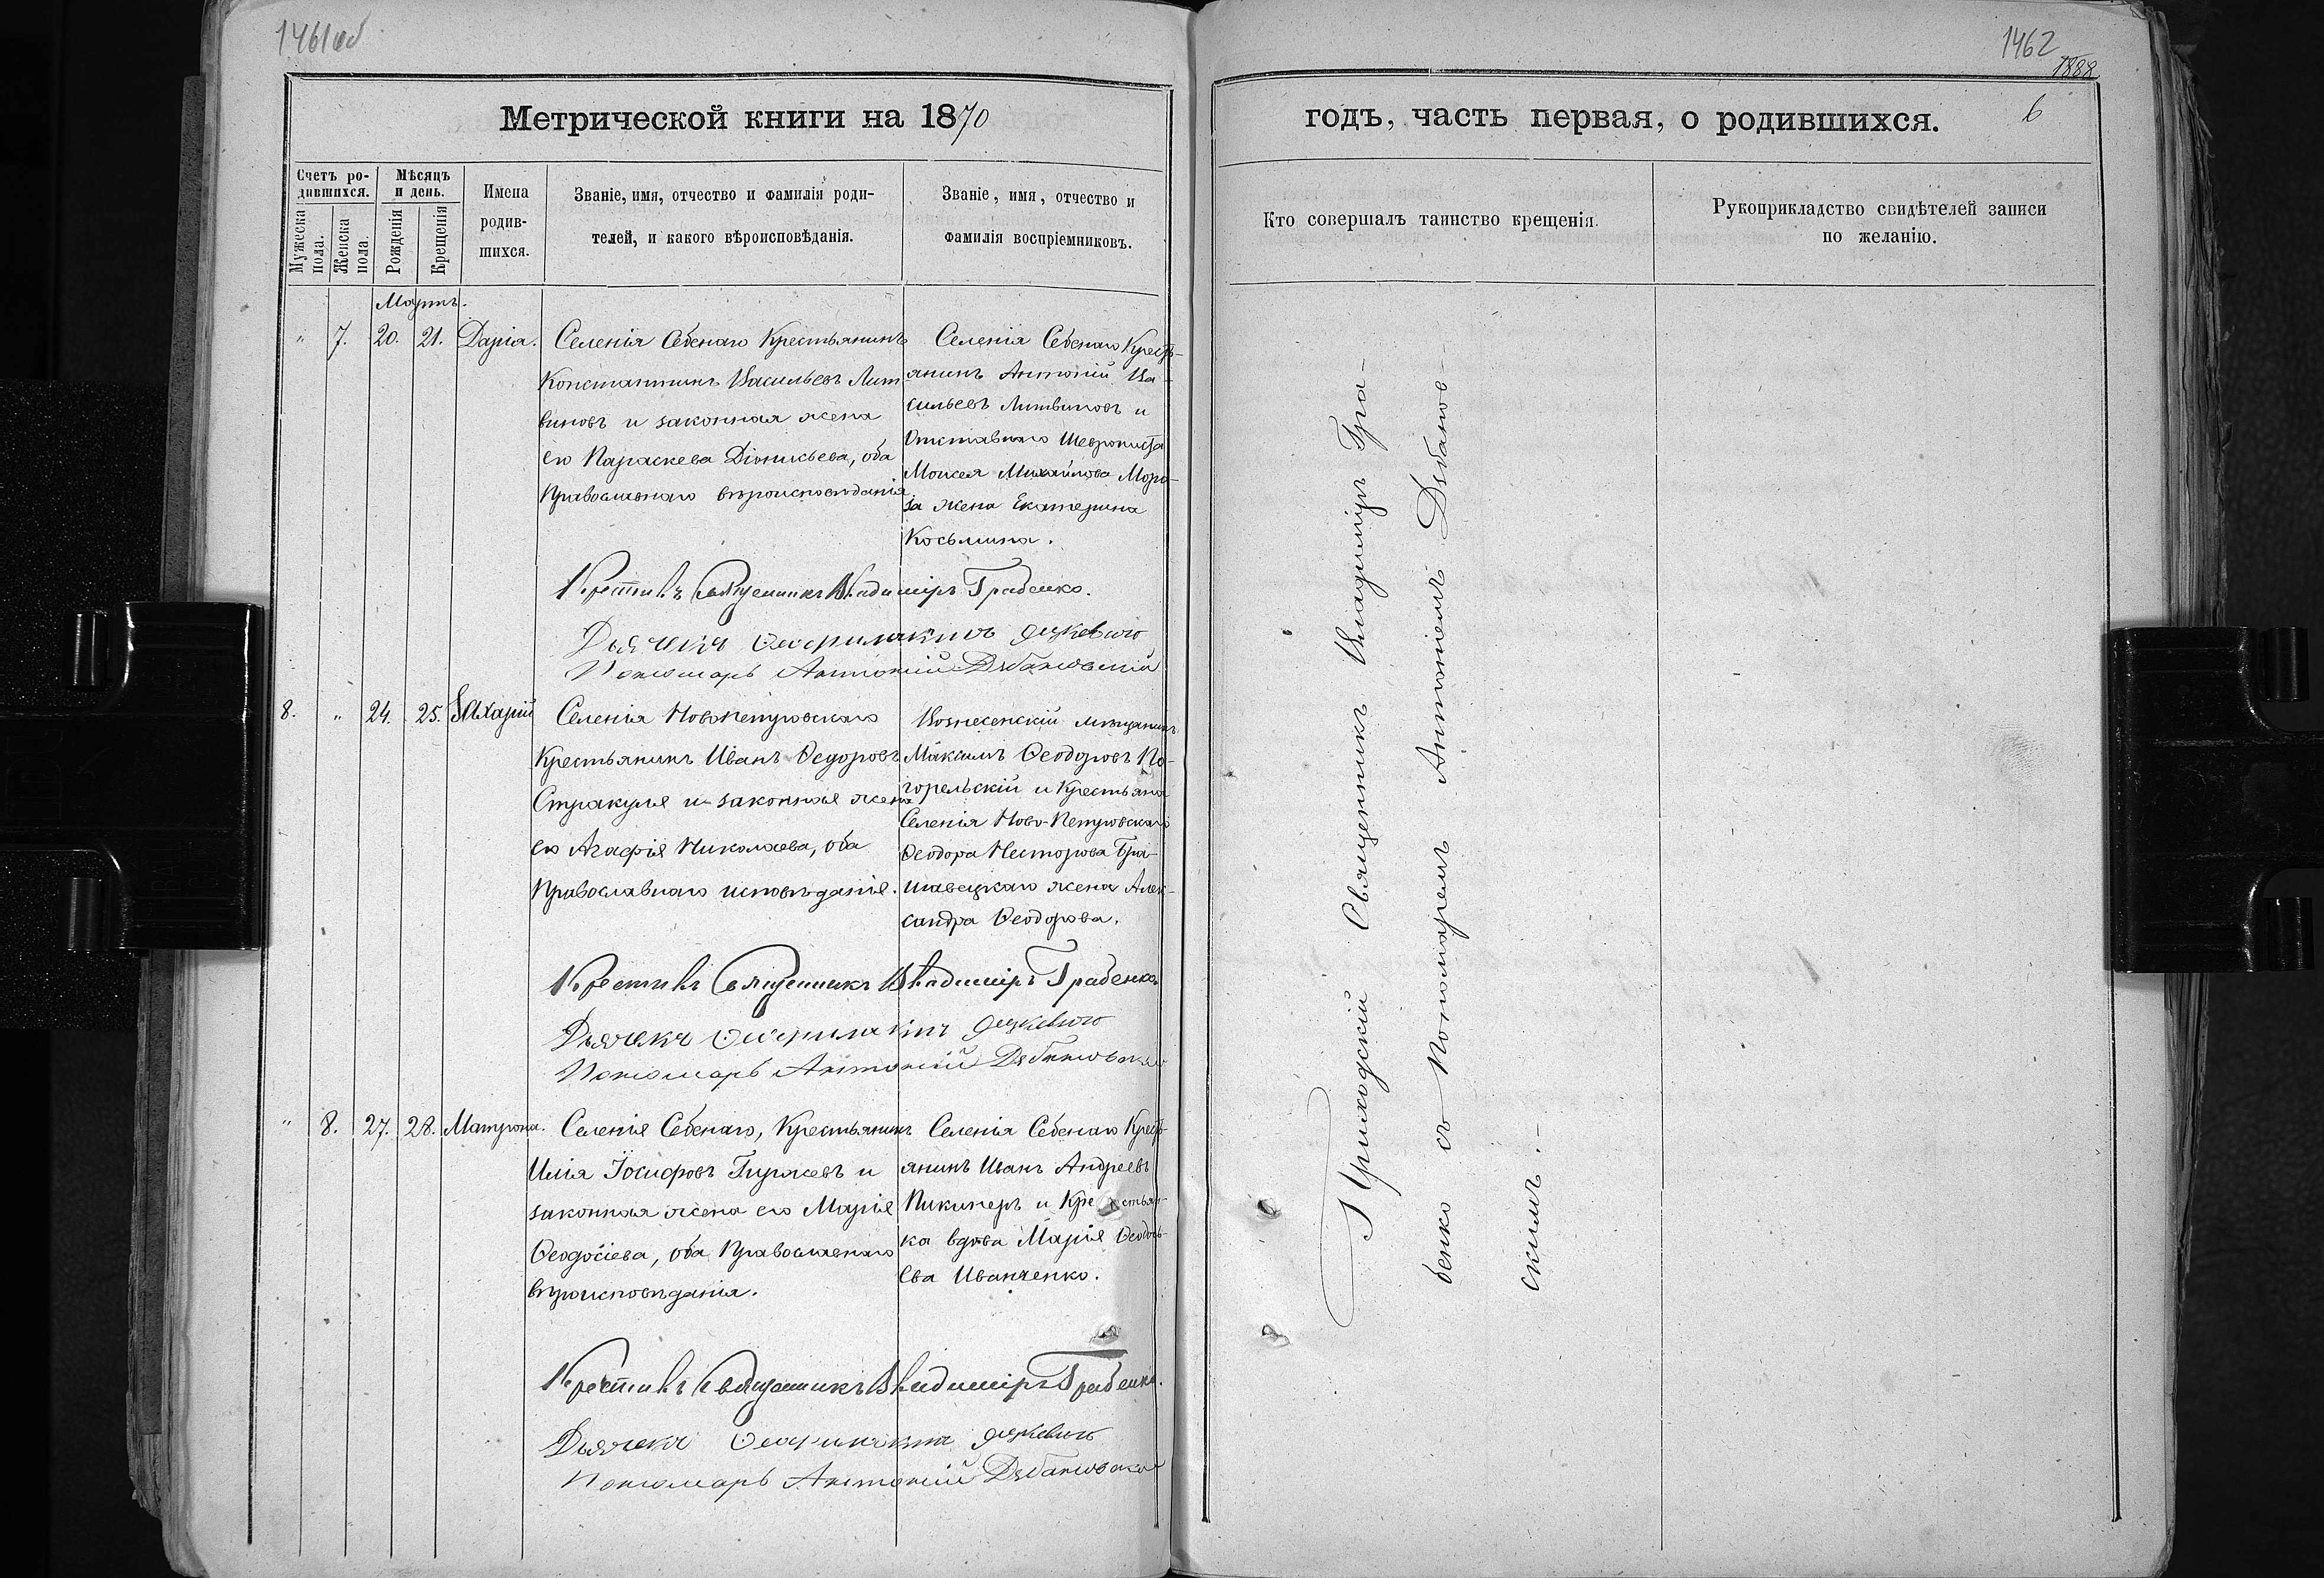 1461об
Метрической книги на 1870
Счетъ ро-
дившихся.
Мужеска
пола.
Женска
пола.
Мѣсяцъ
и день.
Рожденія
Крещенія
Имена
родив-
шихся.
Званіе, имя, отчество и фамилія роди-
телей, и какого вѣроисповѣданія.
Званіе, имя, отчество и
фамилія воспріемниковъ.
Мартъ.
" 7. 20. 21. Дарія.
Селенія Себенаго Крестьянинъ
Константинъ Васильевъ Лит
виновъ и законная жена
его Параскева Діонисьева, оба
Православнаго вѣроисповѣданія
Селенія Себенаго Кресть-
янинъ Антоній Ва-
сильевъ Литвиновъ и
Отставнаго Шеврониста
Моисея Михайлова Моро-
за жена Екатерина
Косьмина.
Крестилъ Священникъ Владиміръ Грабенко.
Дьячекъ
Пономарь Антоній Дзбановскій
8. " 24. 25. Захарій
Селенія Новопетровскаго
Крестьянинъ Иванъ Ѳедоровъ
Стракуля и законная жена
его Агафія Николаева, оба
Православнаго исповѣданія.
Вознесенскій мѣщанинъ
Максимъ Ѳеодоровъ По-
горельскій и Крестьяна
Селенія Ново-Петровскаго
Ѳеодора Несторова
жена Алек-
сандра Ѳеодорова.
Крестилъ Священникъ Владиміръ Грабенко
Дьячекъ
Пономарь Антоній Дзбановскій
" 8. 27. 28. Матрона.
Селенія Себенаго, Крестьянинъ
Илія Іосифовъ Гиржевъ и
законная жена его Марія
Ѳеодосіева, оба Православнаго
вѣроисповѣданія.
Селенія Себенаго Кресть-
янинъ Иванъ Андреевъ
Пикинеръ и Крестьян-
ка вдова Марія Ѳеодось-
ева Иванченко.
Крестилъ Священникъ Владиміръ Грабенко.
Дьячекъ
Пономарь Антоній Дзбановскій
1462
1888
6
годъ, часть первая, о родившихся.
Кто совершалъ таинство крещенія.
Рукоприкладство свидѣтелей записи
по желанію.
Приходскій Священникъ Владиміръ Гра-
бенко съ Пономаремъ Антоніемъ Дзбанов-
скимъ.-